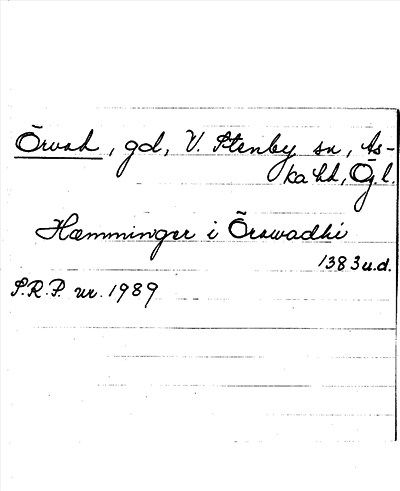 Örvad, gd, V. Stenby sn, As-
ka hd, Ög.l.
Hæmminger i Örawadhi
1383 u.d.
S.R.P. nr. 1989